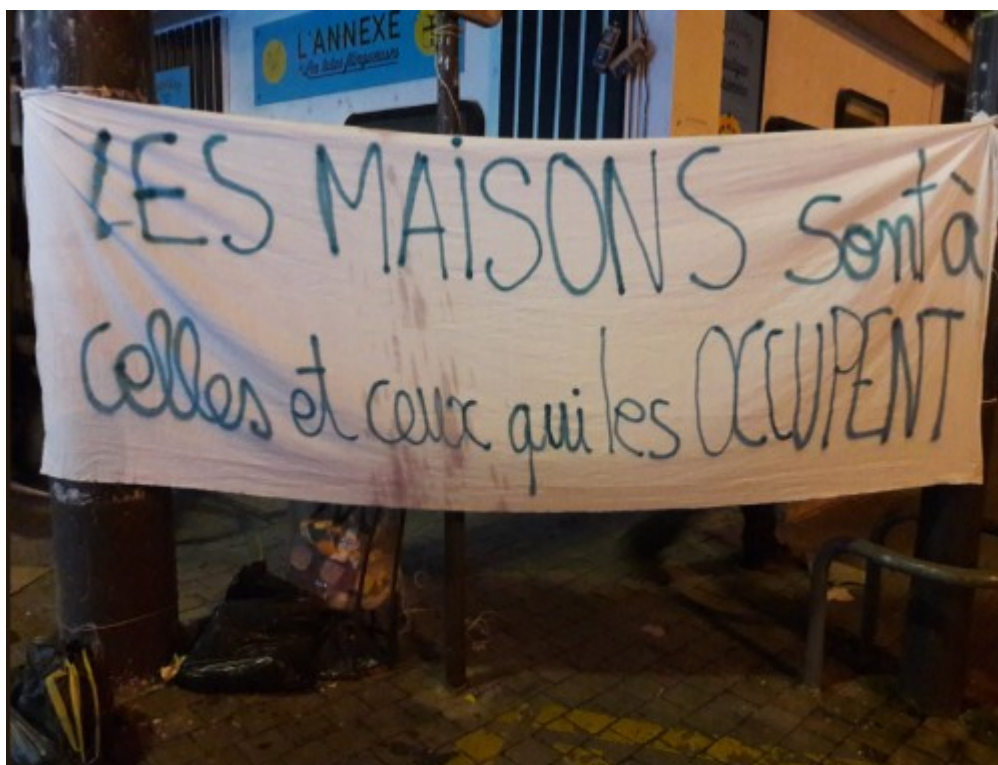 L'ANNEXE
LES MAISONS sont à
celles et ceux qui les OCCUPENT